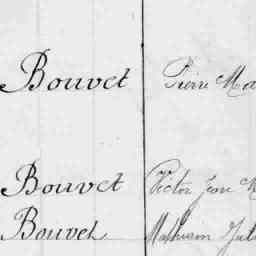 Bouvet Pierre Ma
Bouvet Victor Jean M
Bouvet Mathurin Jul